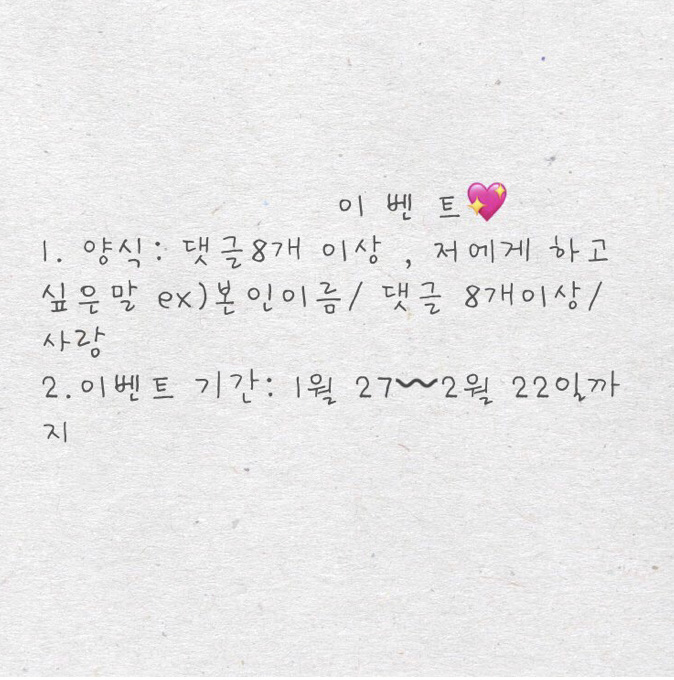 이 벤 트💖
1. 양식: 댓글8개 이상 , 저에게 하고
싶은말 ex)본인이름/ 댓글 8개이상/
사랑
2.이벤트 기간: 1월 27〰️2월 22일까
지